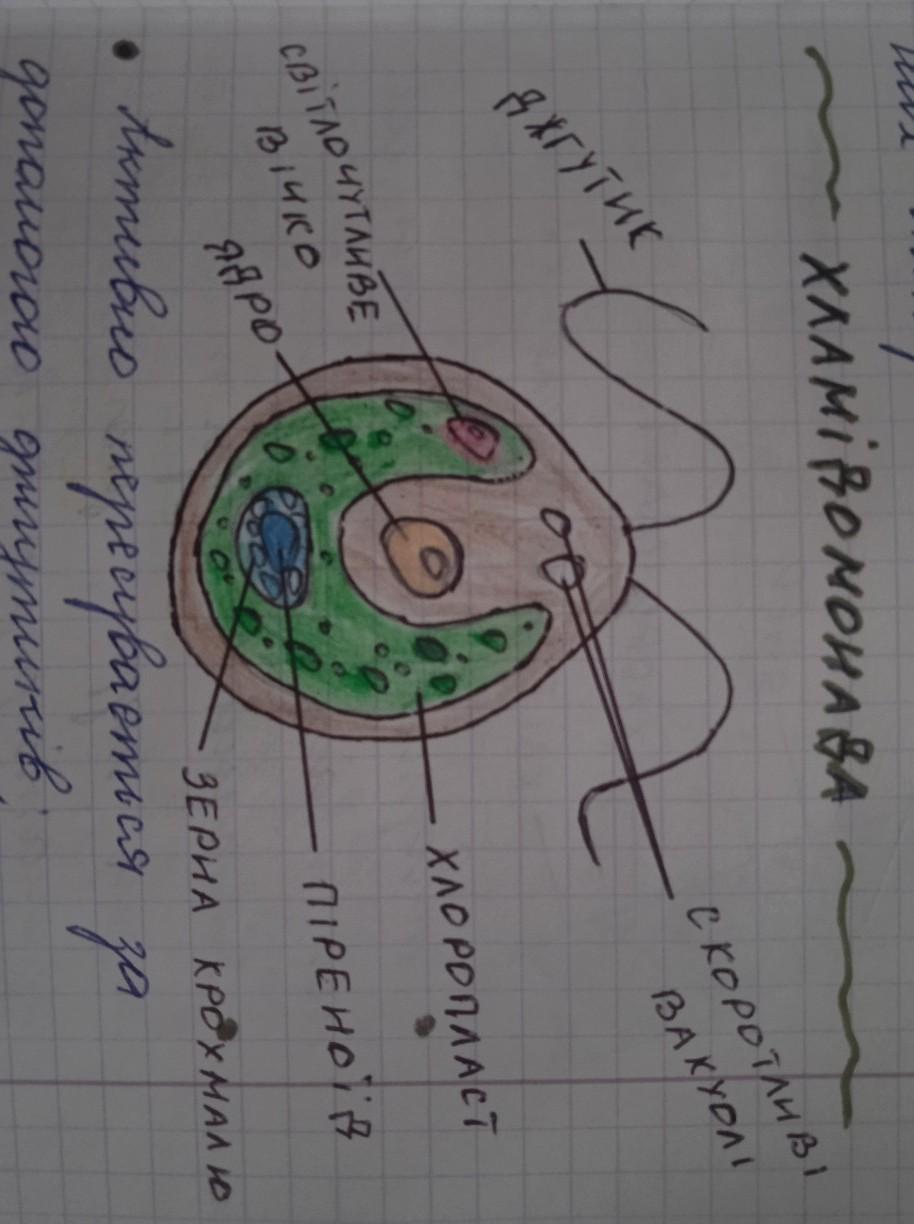 ХЛАМІДОМОНАДА
ДЖГУТИК
СВІТЛОЧУТЛИВЕ
ВІЧКО
ЯДРО
СКОРОТЛИВІ
ВАКУОЛІ
ХЛОРОПЛАСТ
ПІРЕНОЇД
ЗЕРНА КРОХМАЛЮ
• Активно пересувається за
допомогою джгутиків;